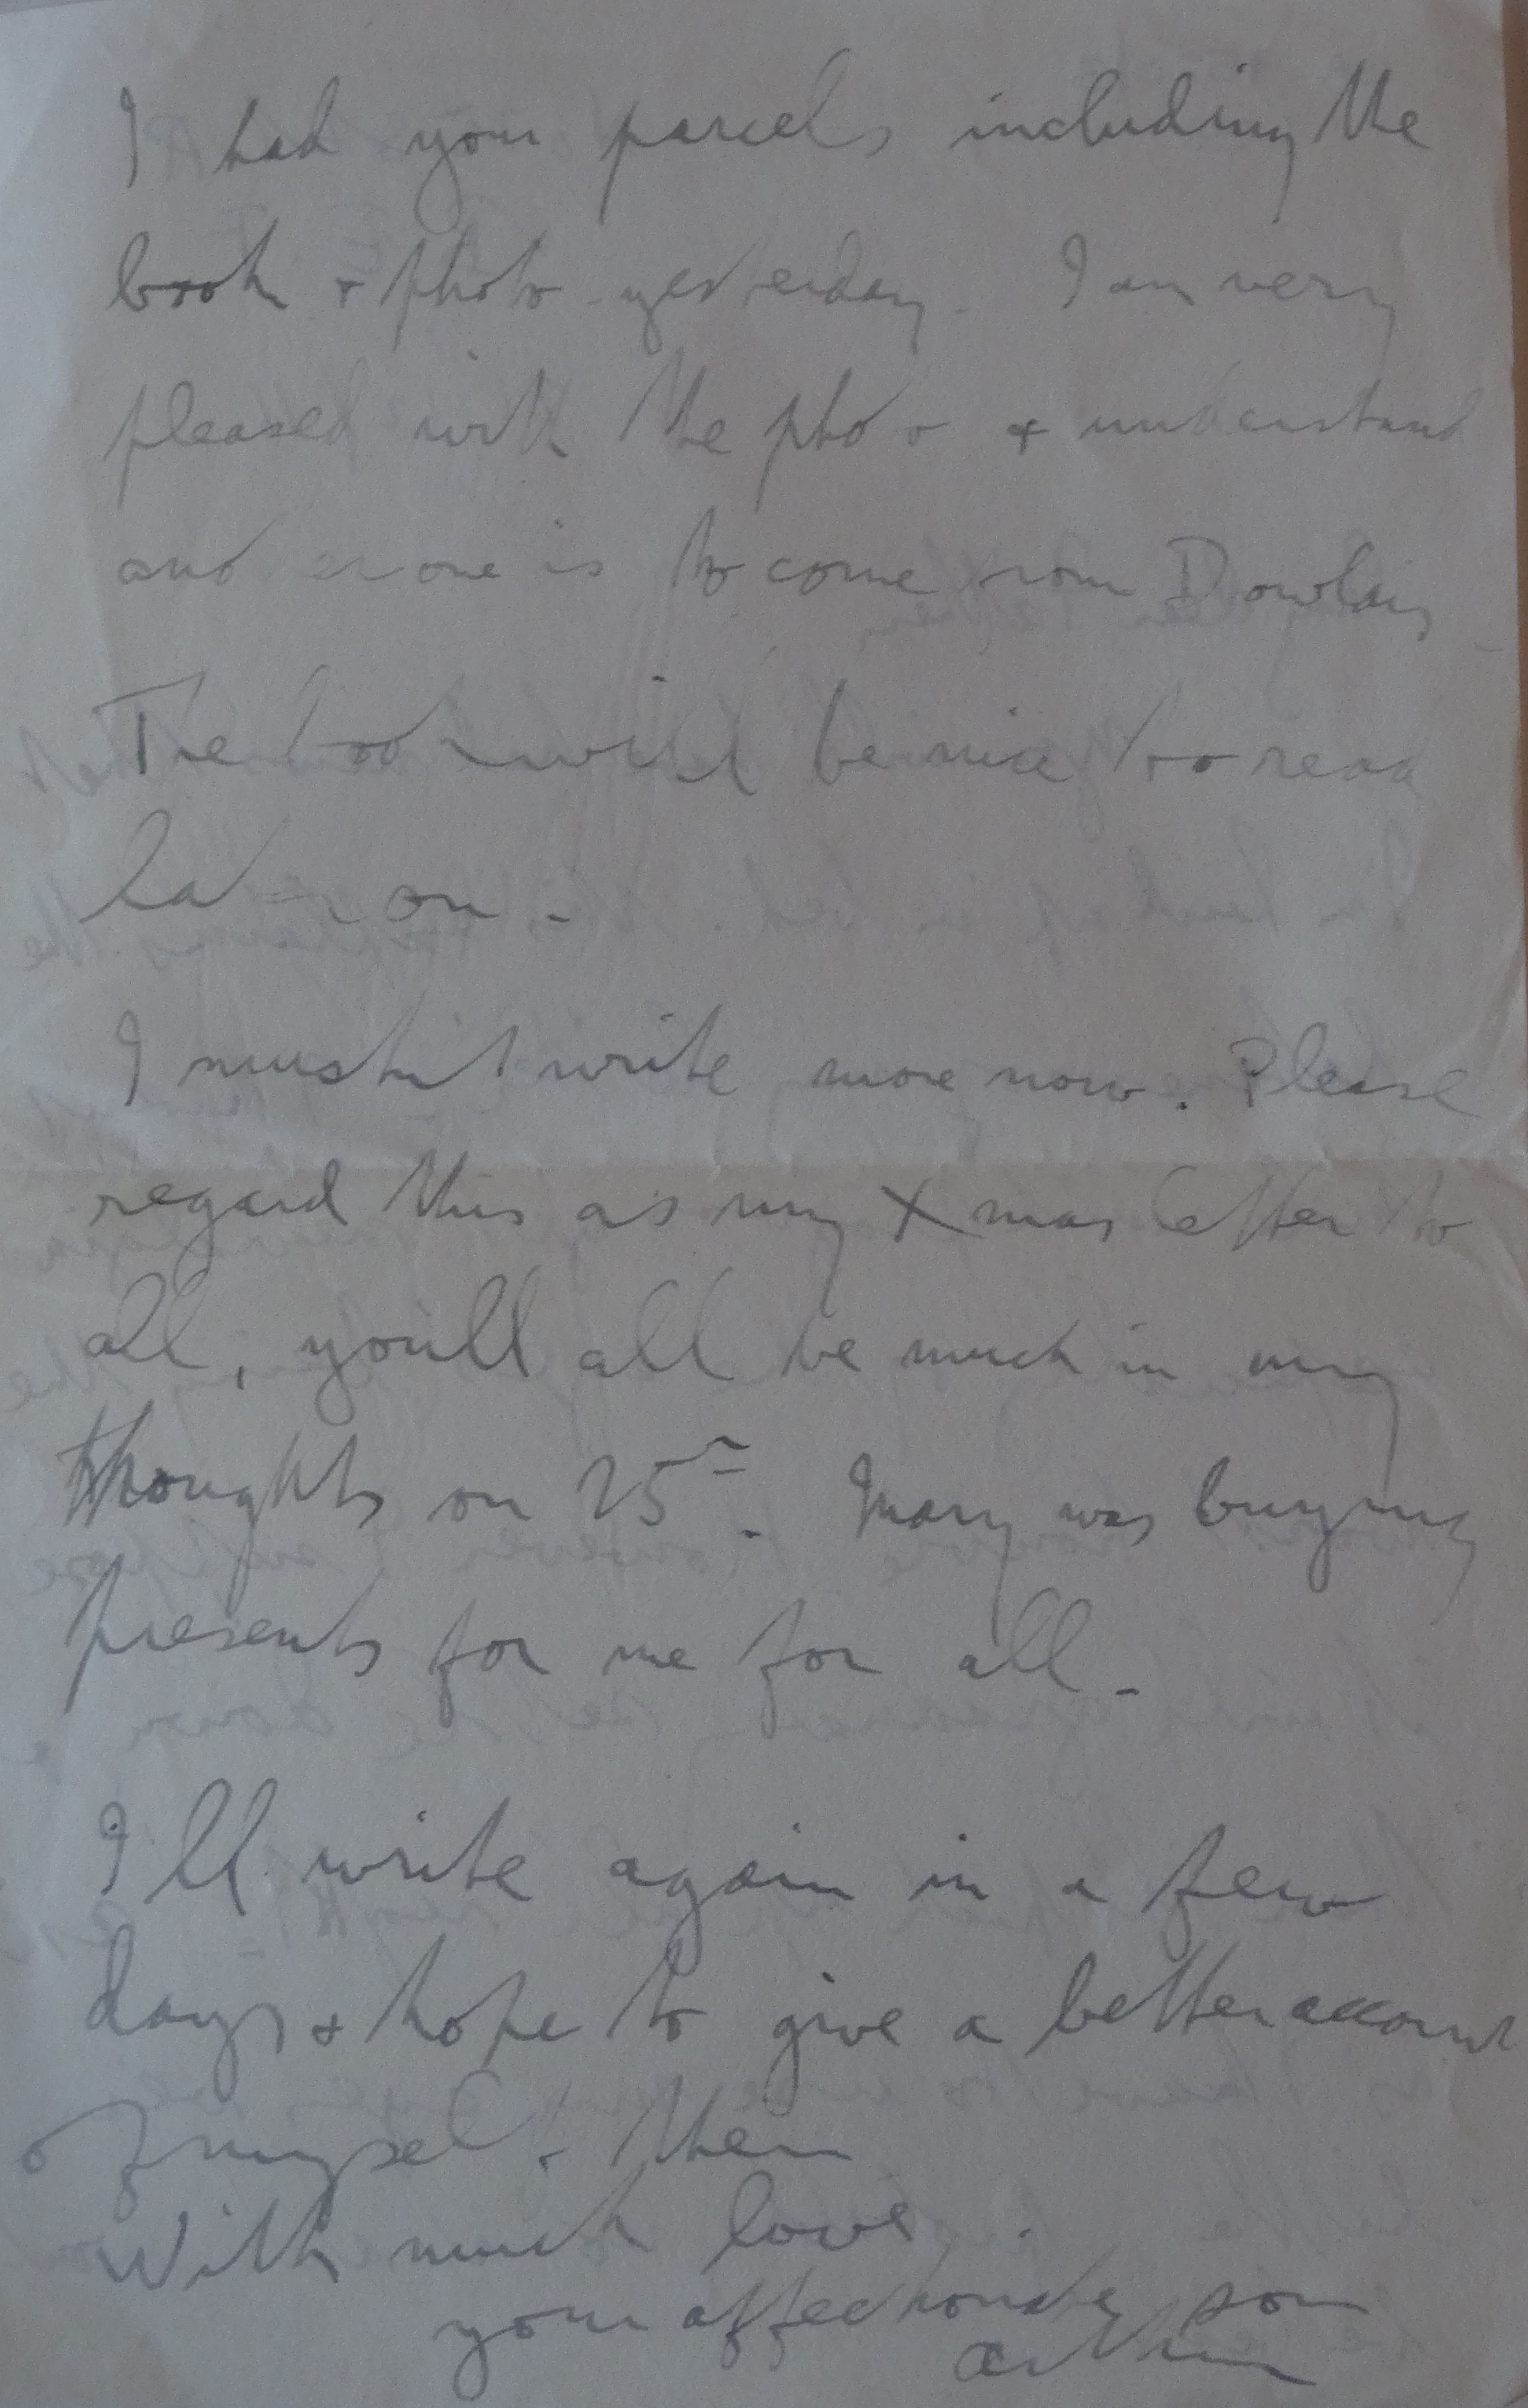 I had your parcels including the
book + photo yesterday. I am very
pleased with the photo + understand
another one is to come from Dowlais
The book will be nice to read
later on.
I mustn't write more now. Please
regard this as my Xmas letter to
all, you'll all be much in my
thoughts on 25th. Mary was buying
presents for me for all.
I'll write again in a few
days + hope to give a better account
of myself then
With much love.
your affectionate son
Arthur